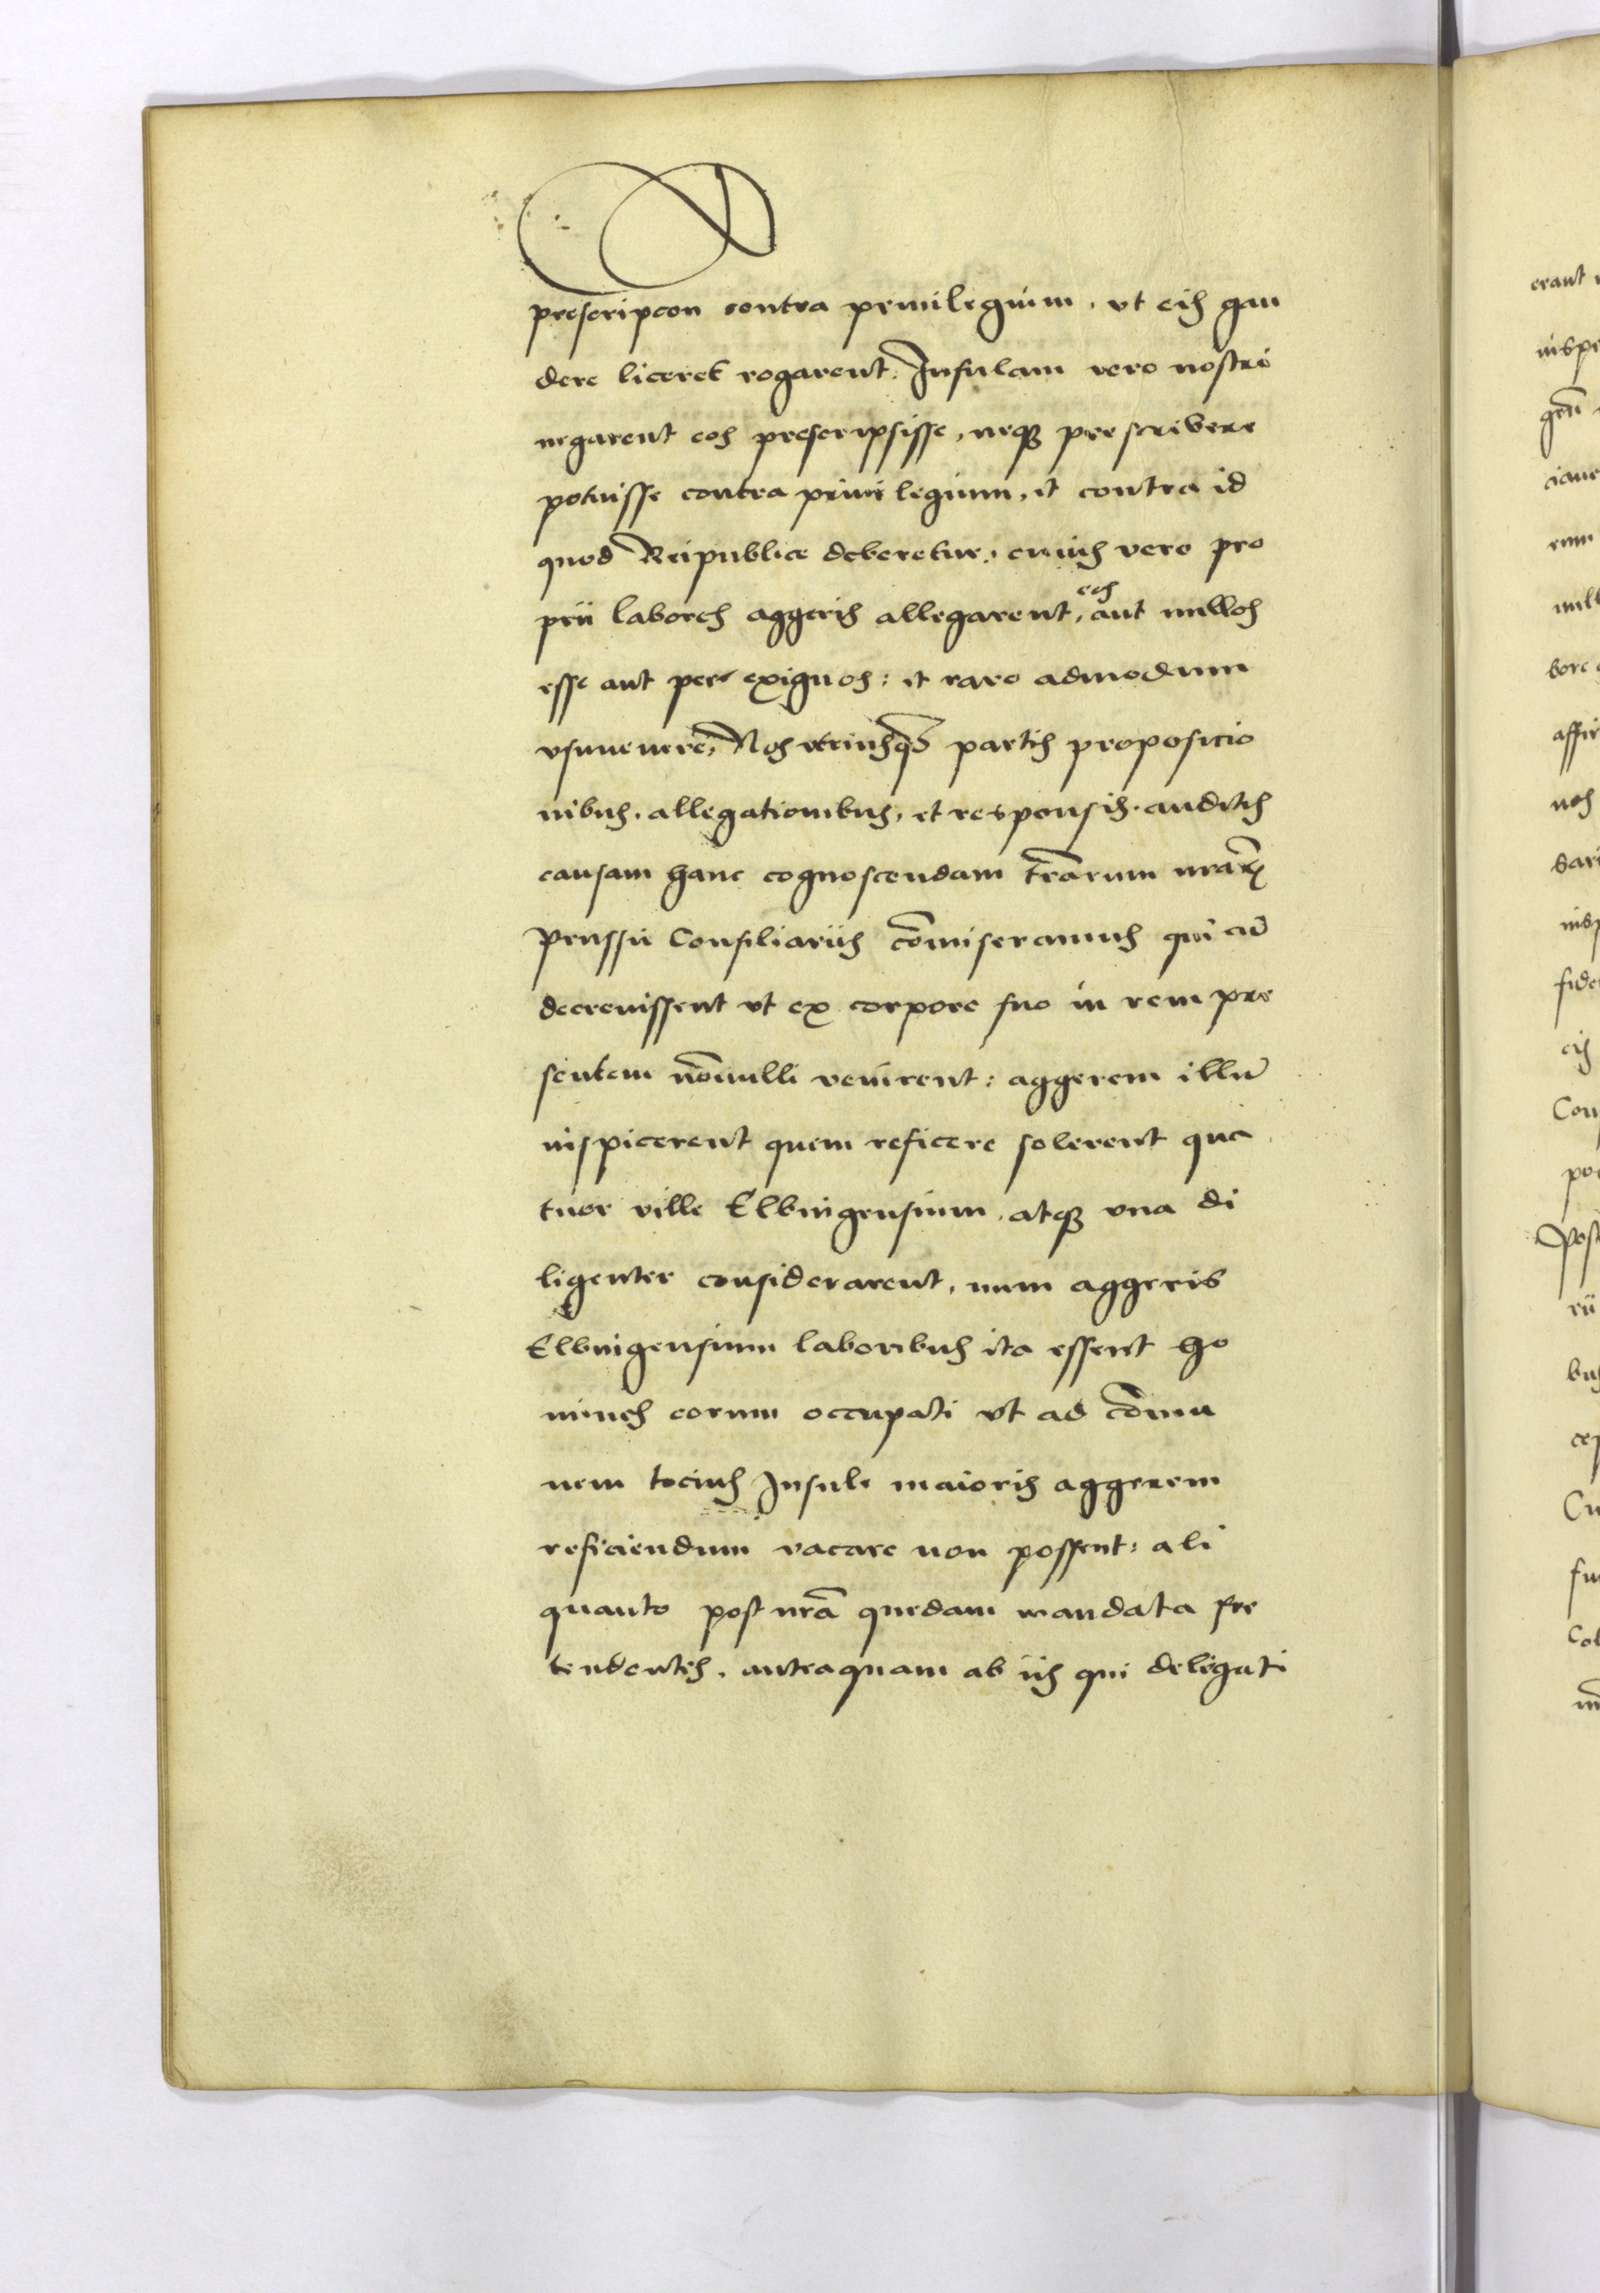 prescripcon contra priuilegium, vt eis gau
dere liceret rogarent. Insulam vero nostri
negarent eos prescripsisse, neqz prescribere
potuisse contra priuilegium, et contra id
quod Reipublice deberetur, cuius vero pro
prii labores aggeris allegarent, eos aut nullos
esse aut per exiguos: et raro admodum
vsuuenire, Nos vtriusqz partis proposicio
nibus, allegationibus, et responsis auditis
causam hanc cognoscendam trarum nrarum
Prussie Consiliariis comiseramus qui cu
decreuissent vt ex corpore suo in rem pre
sentem nonnulli venirent: aggerem illu
inspicerent quem reficere solerent qua
tuor ville Elbingensium, atqz vna di
ligenter considerarent, num aggeris
Elbingensium laboribus ita essent ho
mines eorum occupati vt ad comu
nem tocius Insule maioris aggerem
reficiendum vacare non possent: ali
quanto post nra quedam mandata pre
tendentes, anteaquam ab iis qui delegati
erant
inspe
gen
ciaue
enim
null
bore
affir
nos
sari
insp
fide
eis
Con
po
Post
rii
bus
cep
Cu
fu
Col